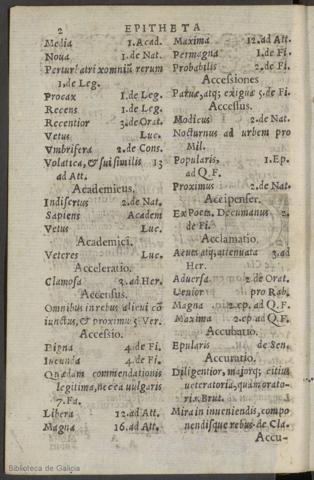 2 EPITHETA
Media 1. Acad.
Noua 1. de Nat.
Perturbatrix omniũ rerum
1. de Leg.
Procax 1. de Leg.
Recens 1. de Leg.
Recentior 3. de Orat.
Vetus Luc.
Vmbrifera 2. de Cons.
Volatica, & sui similis 13
ad Att.
Academicus.
Indisertus 2. de Nat.
Sapiens Academ
Vetus Luc.
Academici.
Veteres Luc.
Acceleratio.
Clamosa 3. ad Her.
Accensus.
Omnibus in rebus alicui cõ
iunctus, & proximus 5 Ver.
Accessio.
Digna 4. de Fi.
Iucunda 4. de Fi.
Quædam commendationis
legitima, nec ea vulgaris
7. Fa.
Libera 12. ad Att.
Magna 16. ad Att.
Maxima 12. ad Att.
Permagna 1. de Fi.
Probabilis 2. de Fi.
Accessiones
Parua, atq; exigua 5. de Fi.
Accessus.
Modicus 2. de Nat.
Nocturnus ad urbem pro
Mil.
Popularis, 1. Ep.
ad Q. F.
Proximus 2. de Nat.
Accipenser.
Ex Poeta. Decumanus 2.
de Fi.
Acclamatio.
Acuta, atq; attenuata 3. ad
Her.
Aduersa 2. de Orat.
Uenior pro Rabi.
Magna 2. ep. ad Q. F.
Maxima 2. ep ad Q. F.
Accubatio.
Epularis de Sen.
Accuratio.
Diligentior, maiorq; citius
ueteratoria, quàm orato-
ria. Brut.
Mira in inueniendis, compo
nendisque rebus de Cla.
Accu-
Biblioteca de Galicia